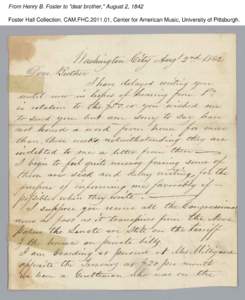 From Henry B. Foster to "dear brother," August 2, 1842
Foster Hall Collection, CAM.FHC.2011.01, Center for American Music, University of Pittsburgh.
Washington City Aug 2nd 1842
Dear Brother
I have delayed writing you
until now in hopes of hearing from
in relation to the you wished me
to send you but am sorry to say have
not heard a word from home for more
than three weeks notwithstanding they are
indebted to me a letter from them
I begin to feel quite uneasy fearing some of
them are sick and delay writing for the
purpose of informing me favorably if
possible when they write
I suppose you receive all the Congressional
news as fast as it transpires from the
the Senate are still on the tariff
& the house on private bills
I am boarding at present at Mrs
opposite the at $20 per month
we have a Gentleman who was on the